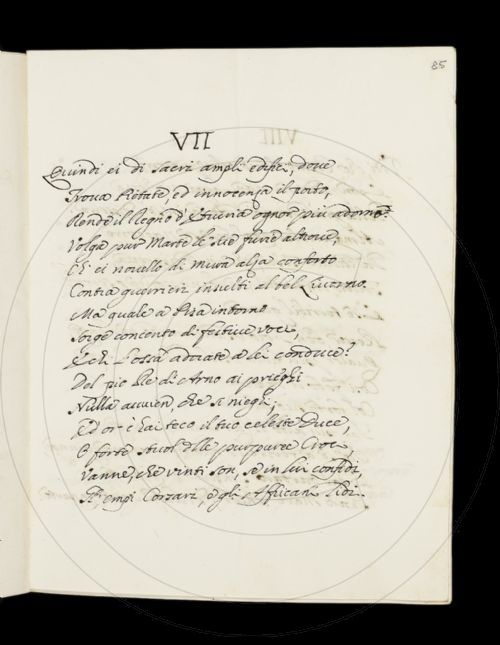 85
VII
Quindi ei di sacri ampli edifici, dove
Trova Pietate, ed innocenza il porto,
Rende il Regno d'Etruria ognor più adorno.
Volga pur Marte il suo furore altrove,
Ch'ei novello di mura alza conforto
Contra guerrieri insulti al bel Livorno.
Ma quale a Pisa intorno
Sorge concento di festive voci,
E chi l'ossa adorate a lei conduce?
Del pio Re di Arno ai prieghi
Nulla avvien, che si nieghi;
Ed or c'hai teco il tuo celeste Duce,
O forte stuol delle purpuree Croci,
Vanne, che vinti son, se in lui confidi,
Gli empi Corsari, e gli Affricani lidi.